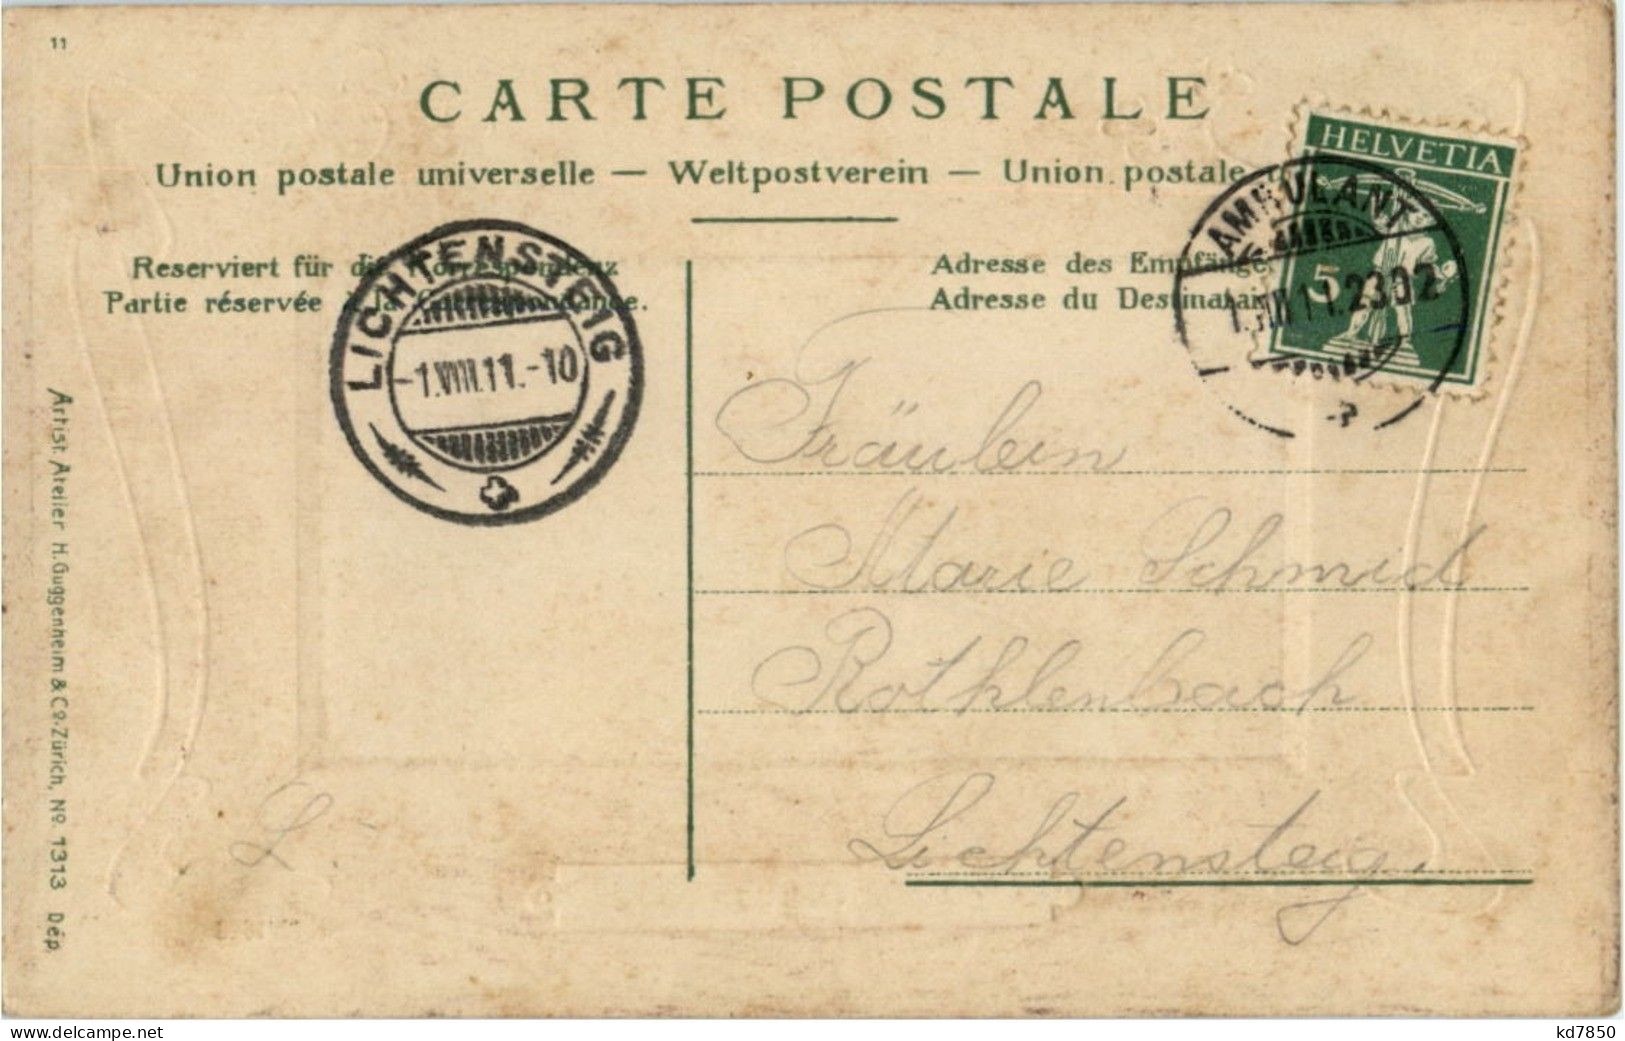 11
CARTE POSTALE
Union postale universelle — Weltpostverein — Union postale
HELVETIA
5
AMBULANT
1.VIII 11.2302
Reserviert für die Korrespondenz
Partie réservée à la Correspondance.
Adresse des Empfänge
Adresse du Destinatai
LICHTENSTEIG
-1.VIII.11.-10
Fräulein
Marie Schmid
Rothlenbach
Lichtensteig.
L
Artist. Atelier H. Guggenheim & Co. Zürich, No. 1313 Dép.
www.delcampe.net
kd7850